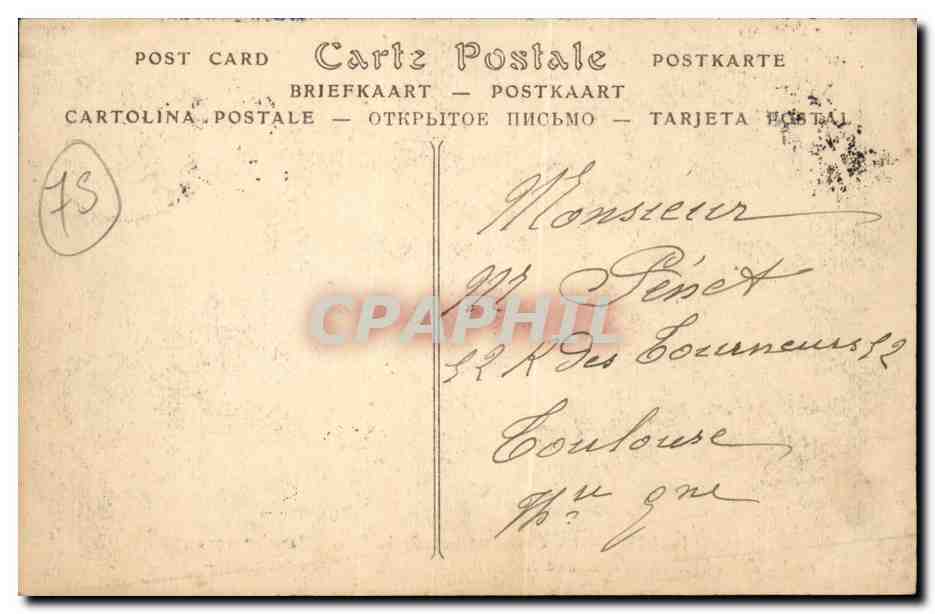 POST CARD Carte Postale POSTKARTE
BRIEFKAART — POSTKAART
CARTOLINA POSTALE — ОТКРЫТОЕ ПИСЬМО — TARJETA POSTAL
75
Monsieur
Mr Pénet
CPAPHIL
52 R des Tourneurs 52
Toulouse
Hte gne